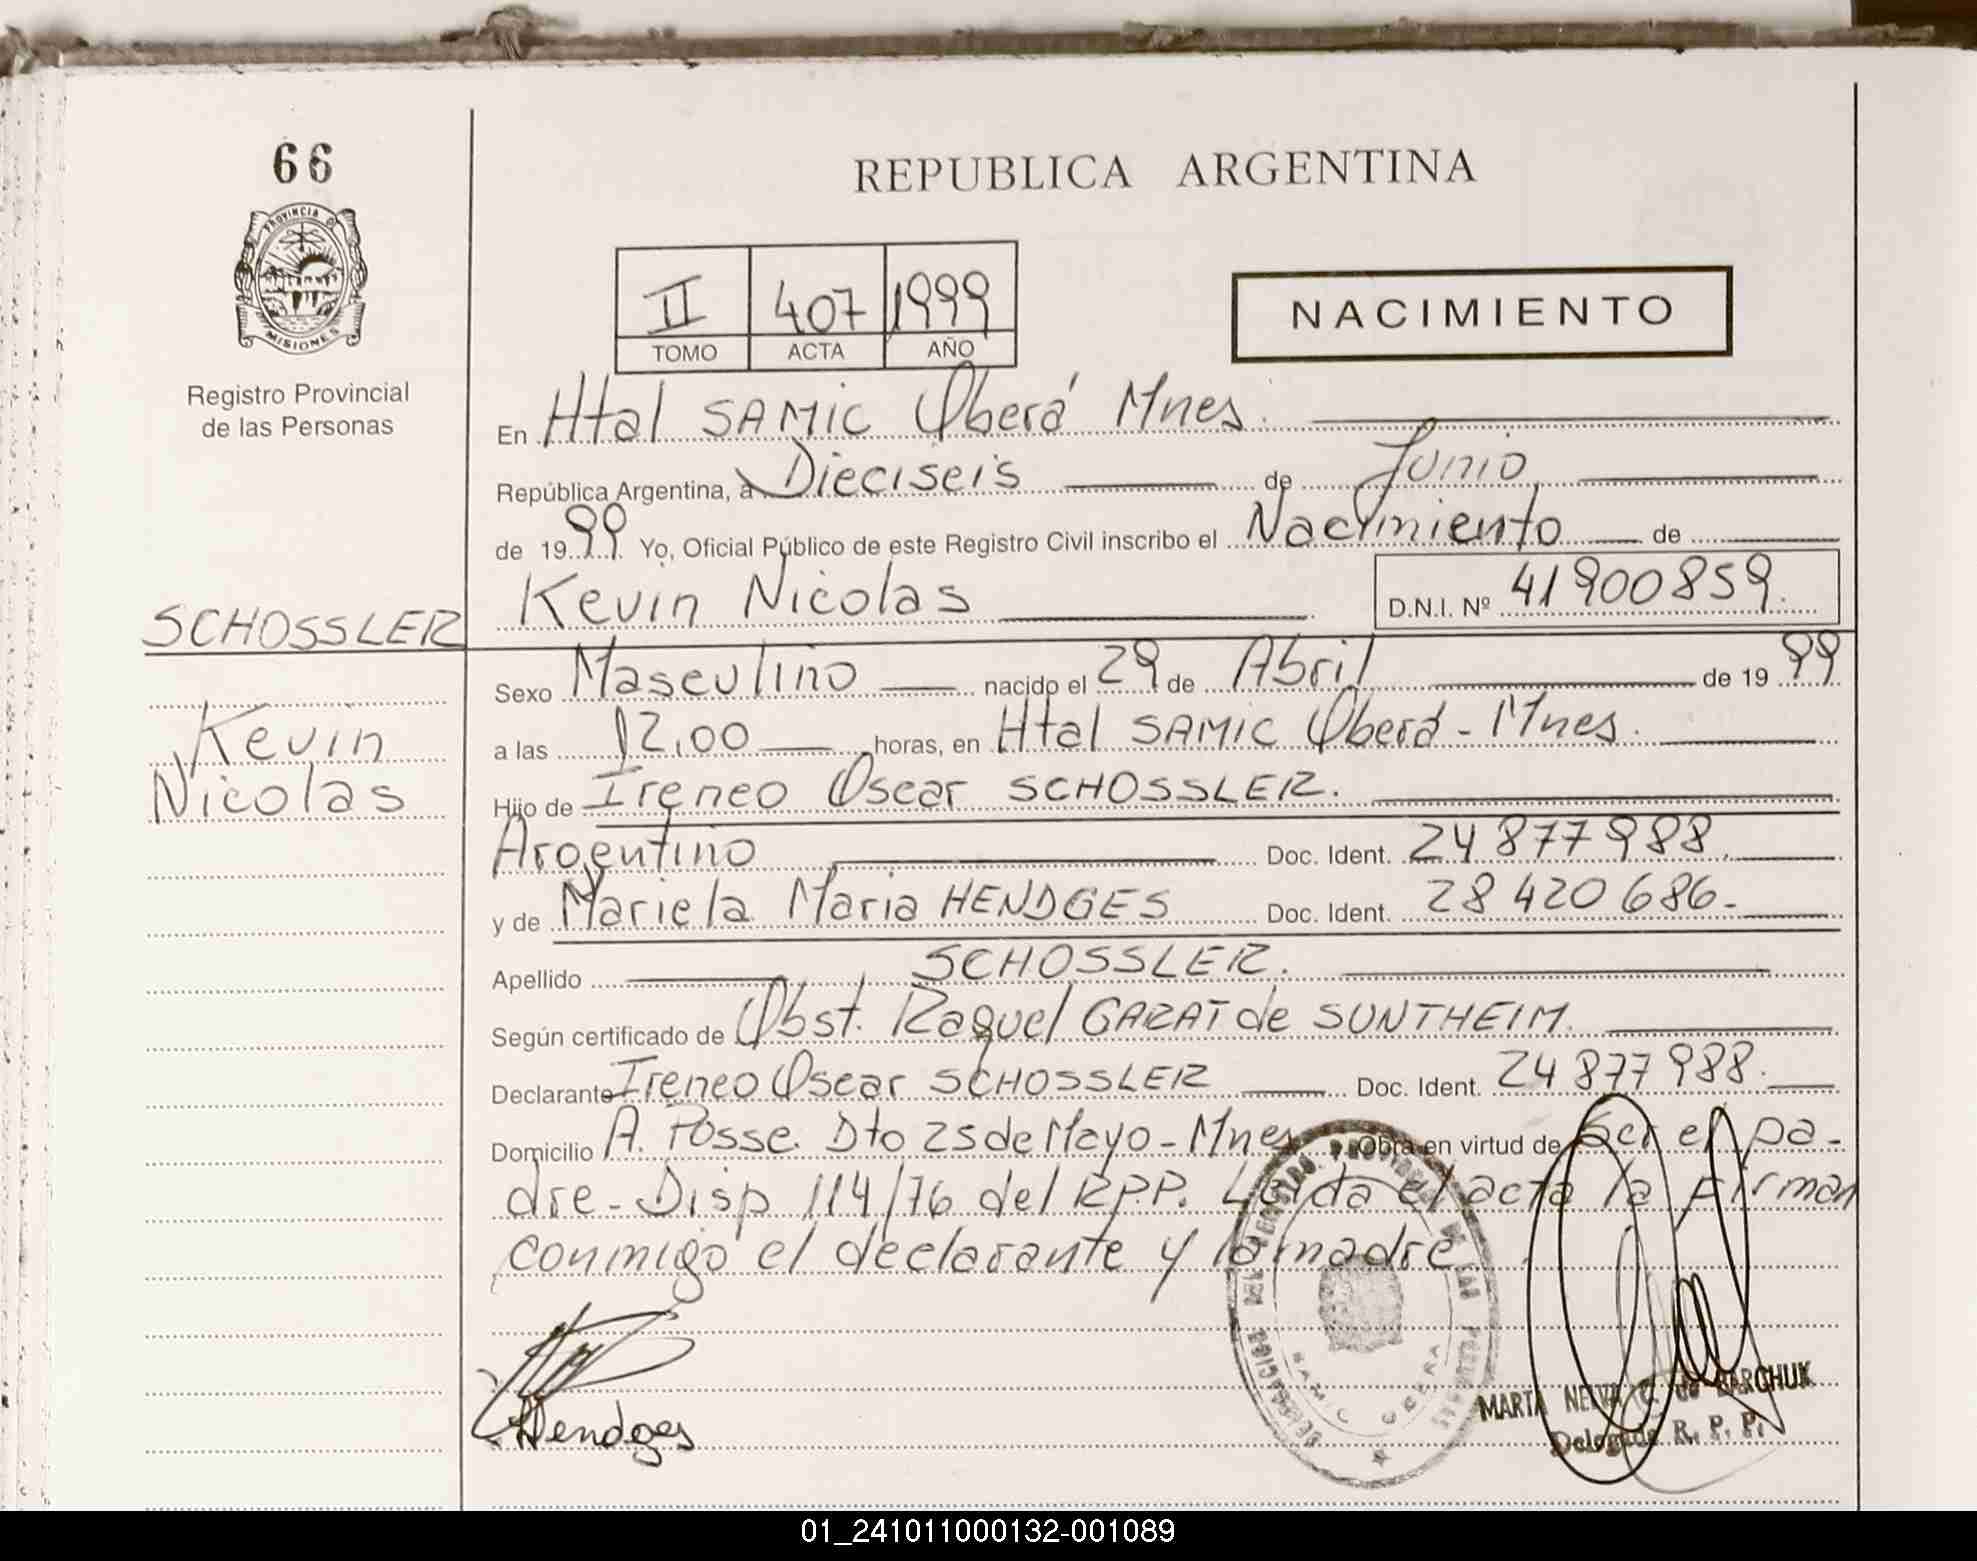 66
PROVINCIA DE
MISIONES
Registro Provincial
de las Personas
REPUBLICA ARGENTINA
II 407 1999
TOMO ACTA AÑO
NACIMIENTO
En Htal SAMIC Oberá Mnes.
República Argentina, a Dieciseis de Junio
de 1999. Yo, Oficial Público de este Registro Civil inscribo el Nacimiento de
Kevin Nicolas D.N.I. Nº 41900859.
SCHOSSLER
Kevin
Nicolas
Sexo Masculino nacido el 29 de Abril de 1999
a las 12,00 horas, en Htal SAMIC Oberá - Mnes.
Hijo de Ireneo Oscar SCHOSSLER.
Argentino Doc. Ident. 24877988.
y de Mariela Maria HENDGES Doc. Ident. 28420686.-
Apellido SCHOSSLER.
Según certificado de Obst. Raquel GARAT de SUNTHEIM.
Declarante Ireneo Oscar SCHOSSLER Doc. Ident. 24877988.
Domicilio A. Posse. Dto 25 de Mayo - Mnes Obra en virtud de Ser el pa-
dre - Disp 114/76 del R.P.P. Leida el acta la firman
conmigo el declarante y la madre
Hendges
DELEGACION DEL REGISTRO PROVINCIAL DE LAS PERSONAS
SAMIC OBERA
MARTA NELVA C. de BARCHUK
Delegada R. P. P.
01_241011000132-001089